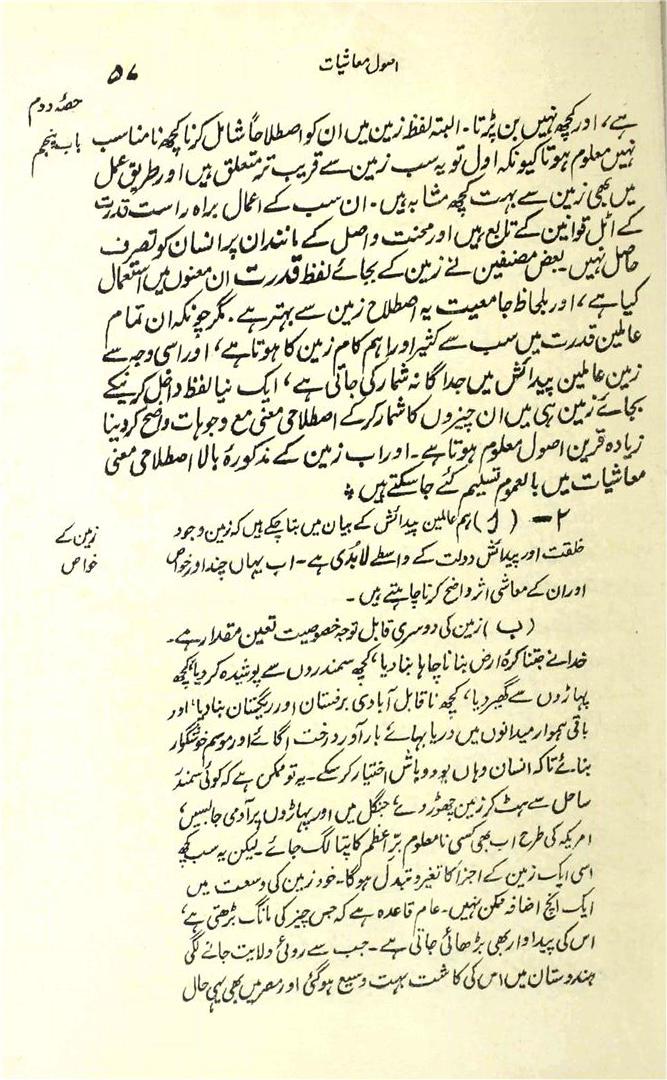 اصول معاشیات
۵۷
حصۂ دوم
باب پنجم
ہے، اور کچھ نہیں بن پڑتا۔ البتہ لفظ زمین میں ان کو اصطلاحاً شامل کرنا کچھ نامناسب
نہیں معلوم ہوتا کیونکہ اول تو یہ سب زمین سے قریب تر متعلق ہیں اور طریق عمل
میں بھی زمین سے بہت کچھ مشابہ ہیں۔ ان سب کے اعمال براہ راست قدرت
کے اٹل قوانین کے تابع ہیں اور محنت و اصل کے مانند ان پر انسان کو تصرف
حاصل نہیں۔ بعض مصنفین نے زمین کے بجائے لفظ قدرت ان معنوں میں استعمال
کیا ہے، اور بلحاظ جامعیت یہ اصطلاح زمین سے بہتر ہے۔ مگر چونکہ ان تمام
عالمین قدرت میں سب سے کثیر اور اہم کام زمین کا ہوتا ہے، اور اسی وجہ سے
زمین عالمین پیدائش میں جداگانہ شمار کی جاتی ہے، ایک نیا لفظ داخل کرنیکے
بجائے زمین ہی میں ان چیزوں کا شمار کرکے اصطلاحی معنی مع وجوہات واضح کردینا
زیادہ قرین اصول معلوم ہوتا ہے۔ اور اب زمین کے مذکورۂ بالا اصطلاحی معنی
معاشیات میں بالعموم تسلیم کئے جاسکتے ہیں
زمین کے
خواص
۲۔ (ا) ہم عالمین پیدائش کے بیان میں بتا چکے ہیں کہ زمین وجود
خلقت اور پیدائش دولت کے واسطے لابدی ہے۔ اب یہاں چند اور خواص
اور ان کے معاشی اثر واضح کرنا چاہتے ہیں۔
(ب) زمین کی دوسری قابل توجہ خصوصیت تعین مقدار ہے۔
خدا نے جتنا کرۂ ارض بنانا چاہا بنا دیا، کچھ سمندروں سے پوشیدہ کردیا، کچھ
پہاڑوں سے گھیر دیا، کچھ ناقابل آبادی برفستان اور ریگستان بنا دیا، اور
باقی ہموار میدانوں میں دریا بہائے بارآور درخت اگائے اور موسم خوشگوار
بنائے تاکہ انسان وہاں بود و باش اختیار کرسکے۔ یہ تو ممکن ہے کہ کوئی سمندر
ساحل سے ہٹ کر زمین چھوڑ دے، جنگل میں اور پہاڑوں پر آدمی جا بسیں،
امریکہ کی طرح اب بھی کسی نامعلوم برّ اعظم کا پتا لگ جائے۔ لیکن یہ سب کچھ
اسی ایک زمین کے اجزا کا تغیر و تبدل ہوگا۔ خود زمین کی وسعت میں
ایک انچ اضافہ ممکن نہیں۔ عام قاعدہ ہے کہ جس چیز کی مانگ بڑھتی ہے،
اس کی پیداوار بھی بڑھائی جاتی ہے۔ جب سے روئی ولایت جانے لگی
ہندوستان میں اس کی کاشت بہت وسیع ہوگئی اور مصر میں بھی یہی حال